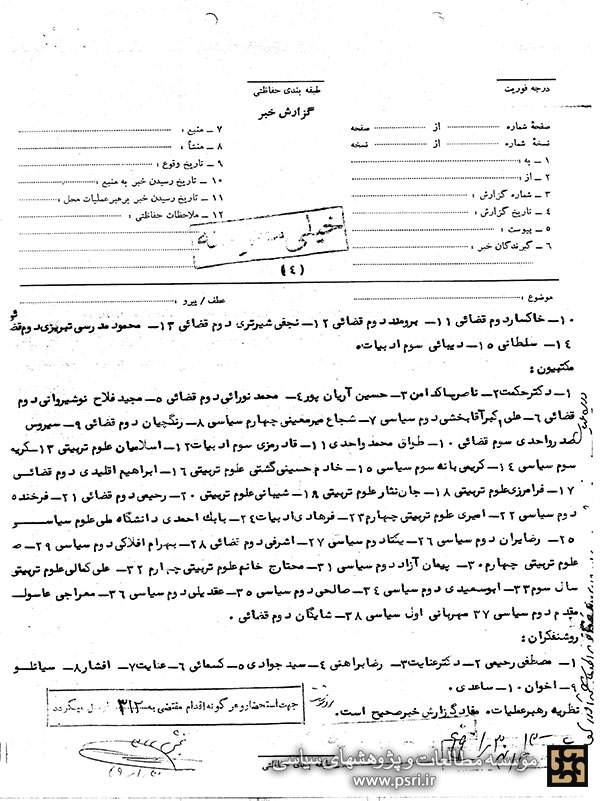 درجه فوریت
طبقه بندی حفاظتی
گزارش خبر
صفحهٔ شماره از صفحه
نسخهٔ شماره از نسخه
۱ ــ به :
۲ ــ از :
۳ ــ شماره گزارش :
۴ ــ تاریخ گزارش :
۵ ــ پیوست :
۶ ــ گیرندگان خبر :
۷ ــ منبع :
۸ ــ منشأ :
۹ ــ تاریخ وقوع :
۱۰ ــ تاریخ رسیدن خبر به منبع :
۱۱ ــ تاریخ رسیدن خبر برهبر عملیات محل :
۱۲ ــ ملاحظات حفاظتی :
خیلی محرمانه
(٤)
موضوع : عطف / پیرو :
۱۰- خاکسار دوم قضائی ۱۱- برومند دوم قضائی ۱۲- نجفی شیرتری دوم قضائی ۱۳- محمود مدرسی تبریزی دوم
۱۴- سلطانی ۱۵- دیبائی سوم ادبیات .
مکتبیون :
۱- دکتر حکمت ۲- ناصر پاکدامن ۳- حسین آریان پور ۴- محمد نورائی دوم قضائی ۵- مجید فلاح نوشیروانی دوم
قضائی ۶- علی اکبر آقابخشی دوم سیاسی ۷- شجاع میرمعینی چهارم سیاسی ۸- رنگچیان دوم قضائی ۹- سیروس
صدر واحدی سوم قضائی ۱۰- طواق محمد واحدی ۱۱- قادرمزی سوم ادبیات ۱۲- اسلامیان علوم تربیتی ۱۳-
سوم سیاسی ۱۴- کریمی بانه سوم سیاسی ۱۵- خادم حسینی گشتی علوم تربیتی ۱۶- ابراهیم اقلیدی دوم قضائی
۱۷- فرامرزی علوم تربیتی ۱۸- جان نثار علوم تربیتی ۱۹- شیبانی علوم تربیتی ۲۰- رحیمی دوم قضائی ۲۱- فرخنده
دوم سیاسی ۲۲- امیری علوم تربیتی چهارم ۲۳- فرهادی ادبیات ۲۴- بابك احمدی دانشگاه ملی علوم سیاسی
۲۵- رضا یران دوم سیاسی ۲۶- یکتا دوم سیاسی ۲۷- اشرفی دوم قضائی ۲۸- بهرام افلاکی دوم سیاسی ۲۹-
علوم تربیتی چهارم ۳۰- پیمان آزاد دوم سیاسی ۳۱- محتاج خانم علوم تربیتی چهارم ۳۲- علی کمالی علوم تربیتی
سال سوم ۳۳- ابوسعیدی دوم سیاسی ۳۴- صالحی دوم سیاسی ۳۵- عقدیلی دوم سیاسی ۳۶- معراجی
مقدم دوم سیاسی ۳۷ مهربانی اول سیاسی ۳۸- شایگان دوم قضائی .
روشنفکران :
۱- مصطفی رحیمی ۲- دکتر عنایت ۳- رضا براهنی ۴- سید جوادی ۵- کسمائی ۶- عنایت ۷- افشار ۸- سپانلو
۹- اخوان ۱۰- ساعدی .
نظریه رهبر عملیات . مفاد گزارش خبر صحیح است .
جهت استحضار و هر گونه اقدام مقتضی به ۳۱۲ ارسال میگردد
موسسه مطالعات و پژوهشهای سیاسی
www.psri.ir